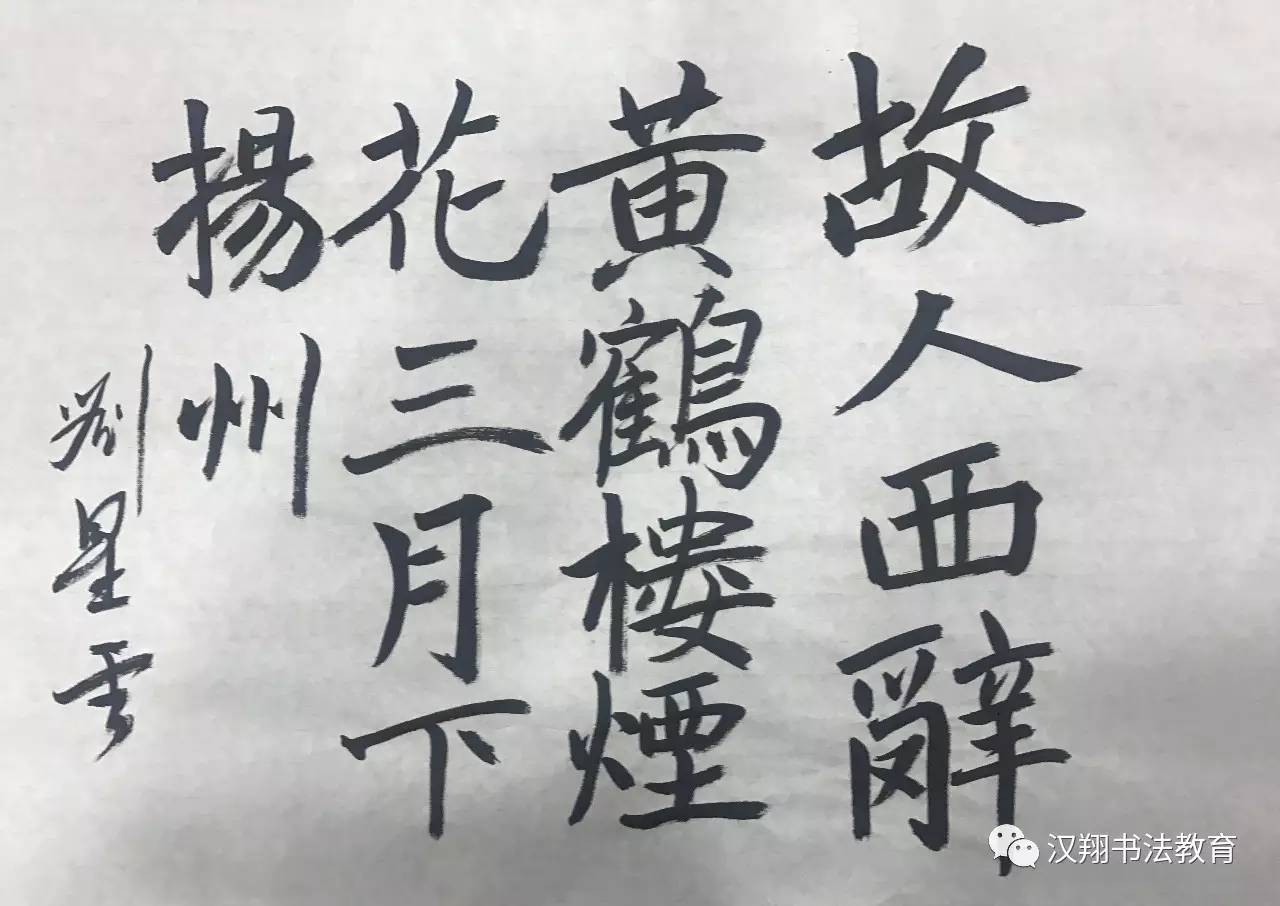 故人西辭
黃鶴樓煙
花三月下
揚州
劉星雲
汉翔书法教育